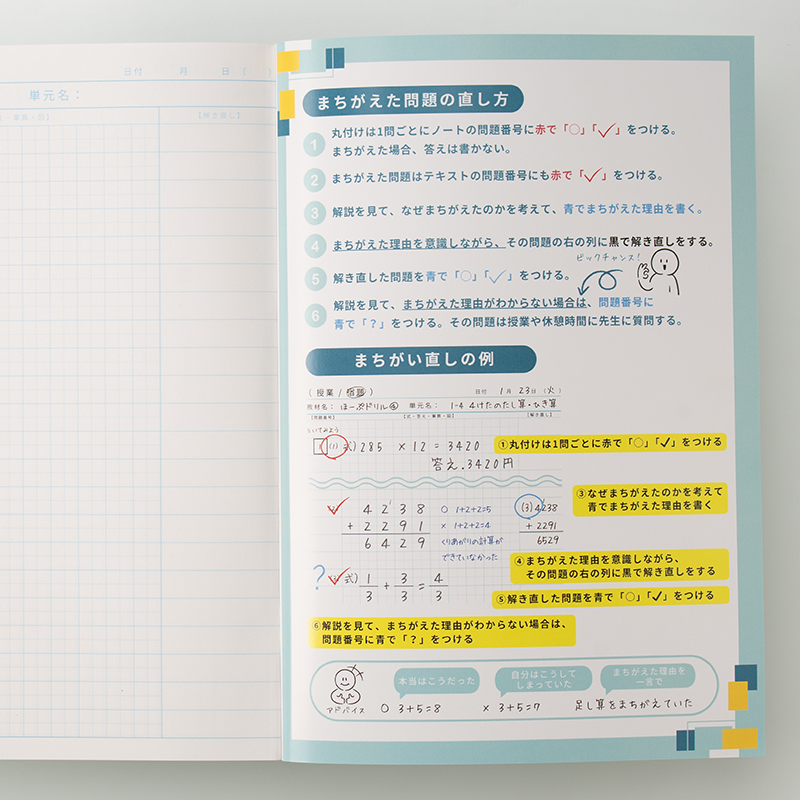 日付　月　日（　）
単元名：
【解き直し】
まちがえた問題の直し方
1 丸付けは1問ごとにノートの問題番号に赤で「○」「✓」をつける。
まちがえた場合、答えは書かない。
2 まちがえた問題はテキストの問題番号にも赤で「✓」をつける。
3 解説を見て、なぜまちがえたのかを考えて、青でまちがえた理由を書く。
4 まちがえた理由を意識しながら、その問題の右の列に黒で解き直しをする。
ビックチャンス！
5 解き直した問題を青で「○」「✓」をつける。
6 解説を見て、まちがえた理由がわからない場合は、問題番号に
青で「？」をつける。その問題は授業や休憩時間に先生に質問する。
まちがい直しの例
（授業 / 宿題）
日付 1月 23日（火）
教材名：ほーぷドリル④ 単元名：1-4 4けたのたし算・ひき算
【問題番号】 【式・答え・筆算・図】 【解き直し】
といてみよう
1 (1) 式) 285 × 12 = 3420
答え. 3420円
①丸付けは1問ごとに赤で「○」「✓」をつける
③なぜまちがえたのかを考えて
青でまちがえた理由を書く
4238 ○ 1+2+2=5 (3) 4238
+ 2291 × 1+2+2=4 + 2291
6429 くりあがりの計算が 6529
できていなかった
④まちがえた理由を意識しながら、
その問題の右の列に黒で解き直しをする
? 式) 1/3 + 3/3 = 4/3
⑤解き直した問題を青で「○」「✓」をつける
⑥解説を見て、まちがえた理由がわからない場合は、
問題番号に青で「？」をつける
アドバイス
本当はこうだった
自分はこうして
しまっていた
まちがえた理由を
一言で
○ 3+5=8 × 3+5=7 足し算をまちがえていた